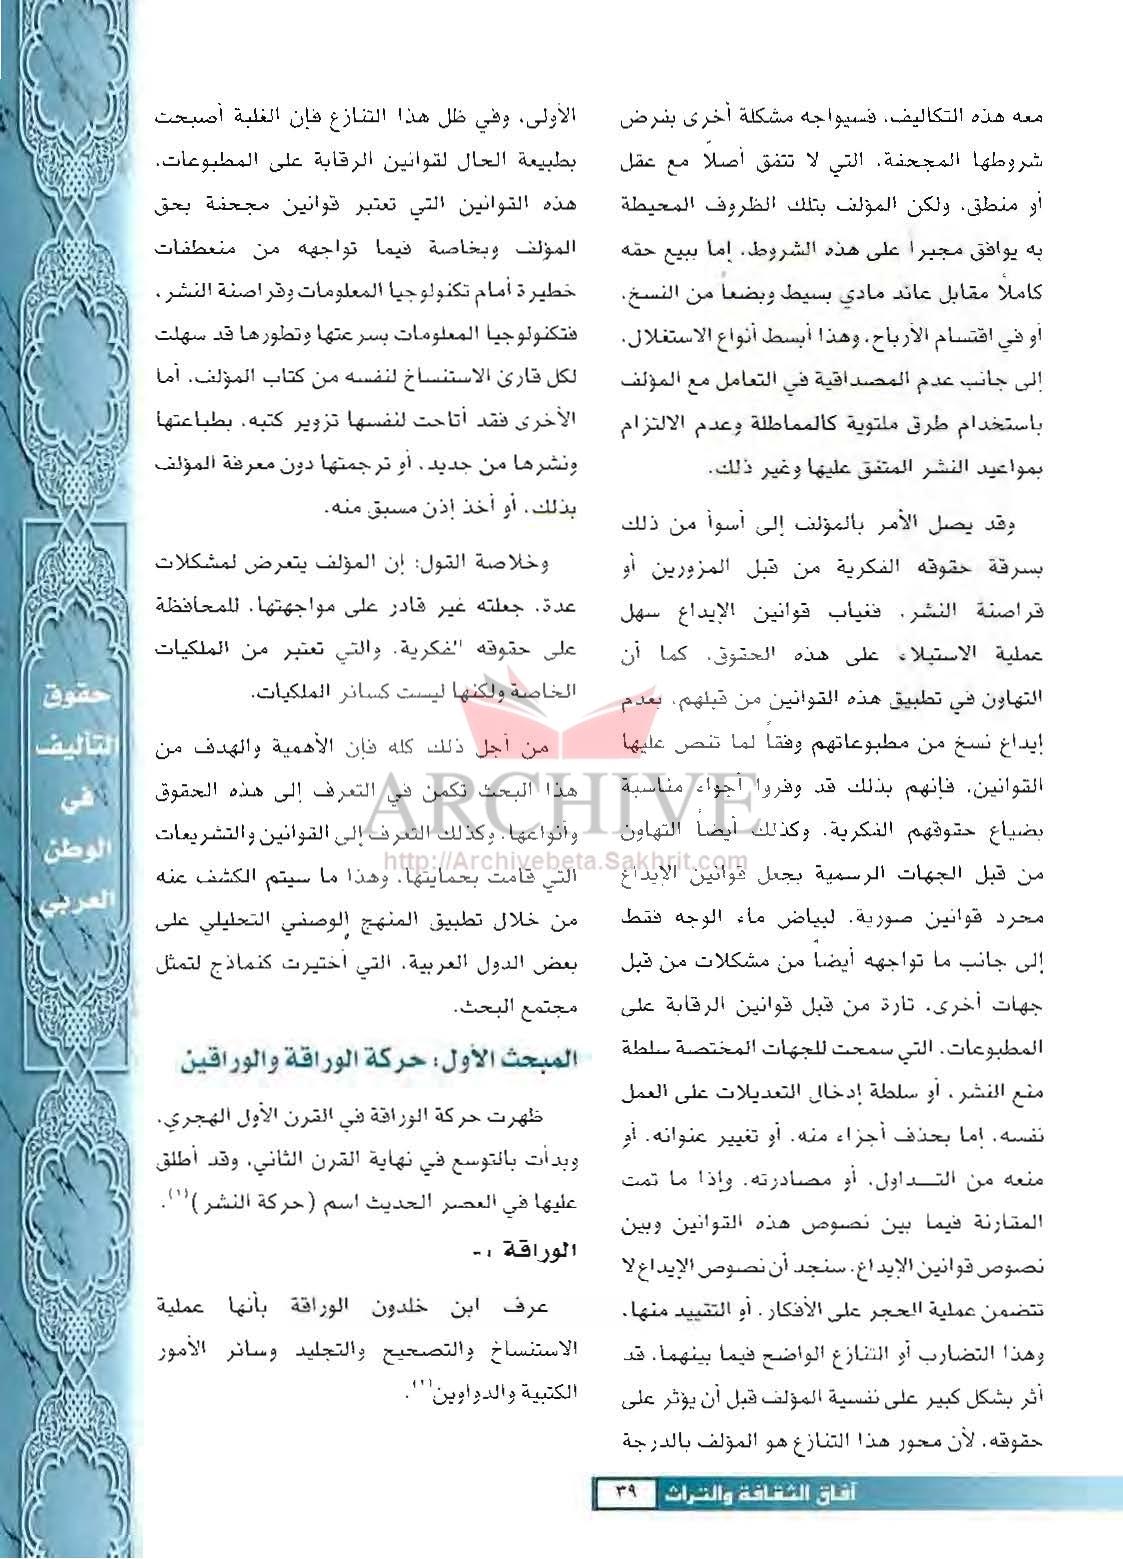 معه هذه التكاليف، فسيواجه مشكلة أخرى بفرض
شروطها المجحفة، التي لا تتفق أصلاً مع عقل
أو منطق، ولكن المؤلف بتلك الظروف المحيطة
به يوافق مجبراً على هذه الشروط، إما ببيع حقه
كاملاً مقابل عائد مادي بسيط وبضعاً من النسخ،
أو في اقتسام الأرباح، وهذا أبسط أنواع الاستغلال،
إلى جانب عدم المصداقية في التعامل مع المؤلف
باستخدام طرق ملتوية كالمماطلة وعدم الالتزام
بمواعيد النشر المتفق عليها وغير ذلك.
وقد يصل الأمر بالمؤلف إلى أسوأ من ذلك
بسرقة حقوقه الفكرية من قبل المزورين أو
قراصنة النشر، فغياب قوانين الإيداع سهل
عملية الاستيلاء على هذه الحقوق، كما أن
التهاون في تطبيق هذه القوانين من قبلهم، بعدم
إيداع نسخ من مطبوعاتهم وفقاً لما تنص عليها
القوانين، فإنهم بذلك قد وفروا أجواء مناسبة
بضياع حقوقهم الفكرية، وكذلك أيضاً التهاون
من قبل الجهات الرسمية بجعل قوانين الإيداع
مجرد قوانين صورية، لبياض ماء الوجه فقط
إلى جانب ما تواجهه أيضاً من مشكلات من قبل
جهات أخرى، تارة من قبل قوانين الرقابة على
المطبوعات، التي سمحت للجهات المختصة سلطة
منع النشر، أو سلطة إدخال التعديلات على العمل
نفسه، إما بحذف أجزاء منه، أو تغيير عنوانه، أو
منعه من التـــداول، أو مصادرته، وإذا ما تمت
المقارنة فيما بين نصوص هذه القوانين وبين
نصوص قوانين الإيداع، سنجد أن نصوص الإيداع لا
تتضمن عملية الحجر على الأفكار، أو التقييد منها،
وهذا التضارب أو التنازع الواضح فيما بينهما، قد
أثر بشكل كبير على نفسية المؤلف قبل أن يؤثر على
حقوقه، لأن محور هذا التنازع هو المؤلف بالدرجة
الأولى، وفي ظل هذا التنازع فإن الغلبة أصبحت
بطبيعة الحال لقوانين الرقابة على المطبوعات،
هذه القوانين التي تعتبر قوانين مجحفة بحق
المؤلف وبخاصة فيما تواجهه من منعطفات
خطيرة أمام تكنولوجيا المعلومات وقراصنة النشر،
فتكنولوجيا المعلومات بسرعتها وتطورها قد سهلت
لكل قارئ الاستنساخ لنفسه من كتاب المؤلف، أما
الأخرى فقد أتاحت لنفسها تزوير كتبه، بطباعتها
ونشرها من جديد، أو ترجمتها دون معرفة المؤلف
بذلك، أو أخذ إذن مسبق منه.
وخلاصة القول: إن المؤلف يتعرض لمشكلات
عدة، جعلته غير قادر على مواجهتها، للمحافظة
على حقوقه الفكرية، والتي تعتبر من الملكيات
الخاصة ولكنها ليست كسائر الملكيات.
من أجل ذلك كله فإن الأهمية والهدف من
هذا البحث تكمن في التعرف إلى هذه الحقوق
وأنواعها، وكذلك التعرف إلى القوانين والتشريعات
التي قامت بحمايتها، وهذا ما سيتم الكشف عنه
من خلال تطبيق المنهج الوصفي التحليلي على
بعض الدول العربية، التي أختيرت كنماذج لتمثل
مجتمع البحث.
المبحث الأول: حركة الوراقة والوراقين
ظهرت حركة الوراقة في القرن الأول الهجري،
وبدأت بالتوسع في نهاية القرن الثاني، وقد أطلق
عليها في العصر الحديث اسم (حركة النشر)(١).
الوراقة :-
عرف ابن خلدون الوراقة بأنها عملية
الاستنساخ والتصحيح والتجليد وسائر الأمور
الكتبية والدواوين(٢).
حقوق
التأليف
في
الوطن
العربي
ARCHIVE
http://Archivebeta.Sakhrit.com
آفاق الثقافة والتراث ٣٩